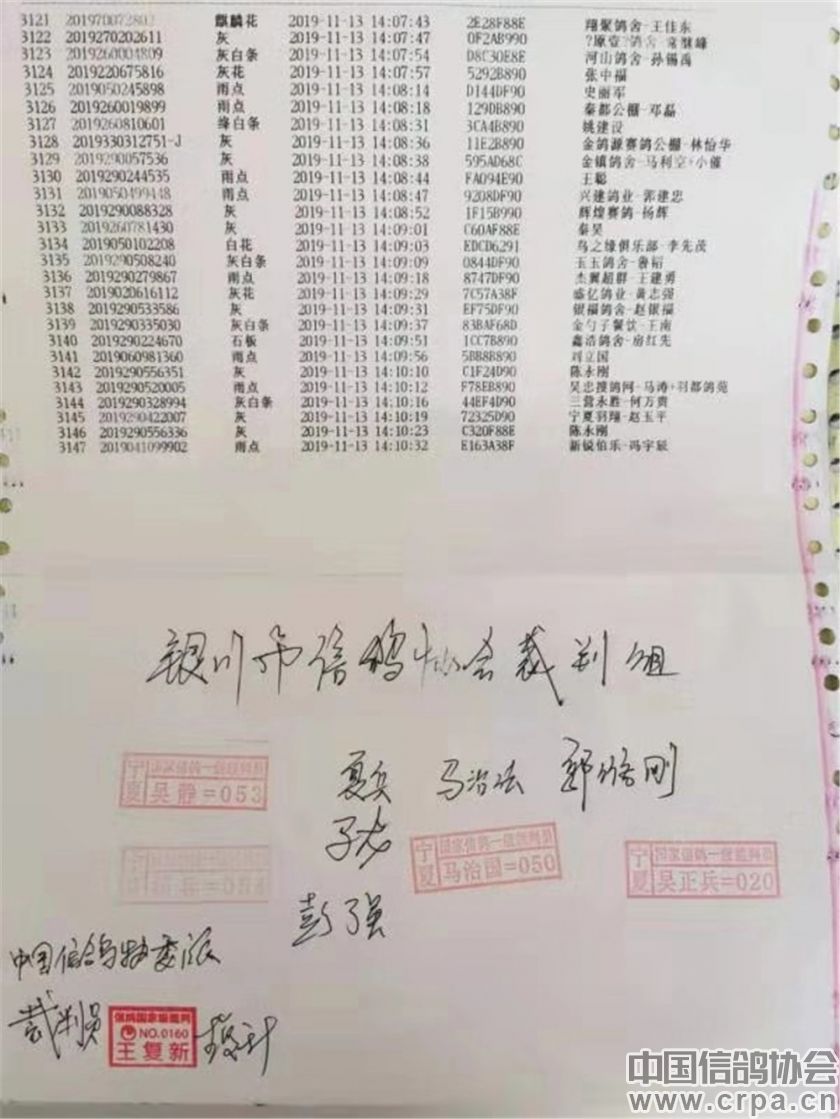 3121 2019700728 麒麟花 2019-11-13 14:07:43 2E28F88E 翔聚鸽舍-王佳东
3122 2019270202611 灰 2019-11-13 14:07:47 0F2AB990
3123 2019260004809 灰白条 2019-11-13 14:07:54 D8C30E8E 河山鸽舍-孙锡禹
3124 2019220675816 灰花 2019-11-13 14:07:57 5292B890 张中福
3125 2019050245898 雨点 2019-11-13 14:08:14 D144DF90 史丽军
3126 2019260019899 雨点 2019-11-13 14:08:18 129DB890 秦都公棚-邓磊
3127 2019260810601 绛白条 2019-11-13 14:08:31 3CA4B890 姚建设
3128 2019330312751-J 灰 2019-11-13 14:08:36 11E2B890 金鸽源赛鸽公棚-林怡华
3129 2019290057536 灰 2019-11-13 14:08:38 595AD68C 金镇鸽舍-马利空+小催
3130 2019290244535 雨点 2019-11-13 14:08:44 FA094E90 王聪
3131 2019050499448 雨点 2019-11-13 14:08:47 9208DF90 兴建鸽业-郭建忠
3132 2019290088328 灰 2019-11-13 14:08:52 1F15B990 辉煌赛鸽-杨辉
3133 2019260781430 灰 2019-11-13 14:09:01 C60AF88E 秦昊
3134 2019050102208 白花 2019-11-13 14:09:03 EDCD6291 鸟之缘俱乐部-李先茂
3135 2019290508240 灰白条 2019-11-13 14:09:09 0844DF90 玉玉鸽舍-鲁韬
3136 2019290279867 雨点 2019-11-13 14:09:18 8747DF90 杰翼超群-王建勇
3137 2019020616112 灰花 2019-11-13 14:09:29 7C57A38F 盛亿鸽业-黄志强
3138 2019290533586 灰 2019-11-13 14:09:31 EF75DF90 银福鸽舍-赵银福
3139 2019290335030 灰白条 2019-11-13 14:09:37 83BAF68D 金勺子餐饮-王南
3140 2019290224670 石板 2019-11-13 14:09:51 1CC7B890 鑫浩鸽舍-房红先
3141 2019060981360 雨点 2019-11-13 14:09:56 5BB8B890 刘立国
3142 2019290556351 灰 2019-11-13 14:10:10 C1F24D90 陈永刚
3143 2019290520005 雨点 2019-11-13 14:10:12 F78EB890 吴忠搜鸽网-马涛+羽都鸽苑
3144 2019290328994 灰白条 2019-11-13 14:10:16 44EF4D90 三营永胜-何万贵
3145 2019290422007 灰 2019-11-13 14:10:19 72325D90 宁夏羽翔-赵玉平
3146 2019290556336 灰 2019-11-13 14:10:23 C320F88E 陈永刚
3147 2019041099902 雨点 2019-11-13 14:10:32 E163A38F 新锐伯乐-冯宇宸
银川市信鸽协会裁判组
宁夏 国家信鸽一级裁判员
吴静=053
夏兵 马治法 郭修刚
宁夏 国家信鸽一级裁判员
马治国=050
宁夏 国家信鸽一级裁判员
吴正兵=020
彭强
中国信鸽协委派
裁判员
信鸽国家级裁判
NO.0160
王复新
中国信鸽协会
www.crpa.cn